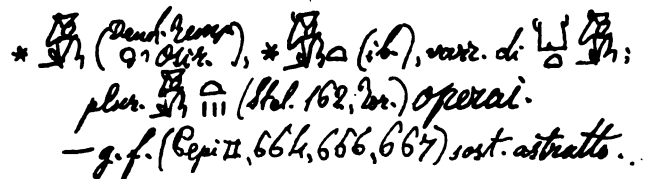 * (Dend. Temp. Osir.), * (ib), varr. di ;
plur. (Stel. 162, Tor.) operai.
— g. f. (Pepi II, 664, 666, 667) sost. astratto..